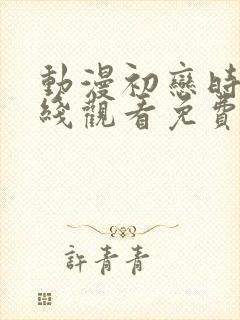 動漫初戀時
綫觀看免費
許青青